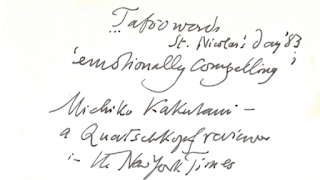 ... Taboo words
St. Nicolas's Day '83
'emotionally compelling'
Michiko Kakutani –
a Quatschkopf reviewer
in the New York Times